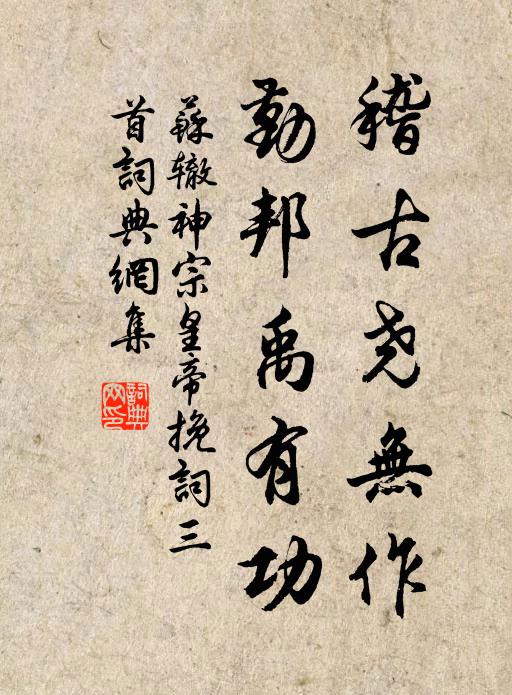 稽古尧無作
勤邦禹有功
蘇辙神宗皇帝挽詞三
首詞典網集
詞典
网印